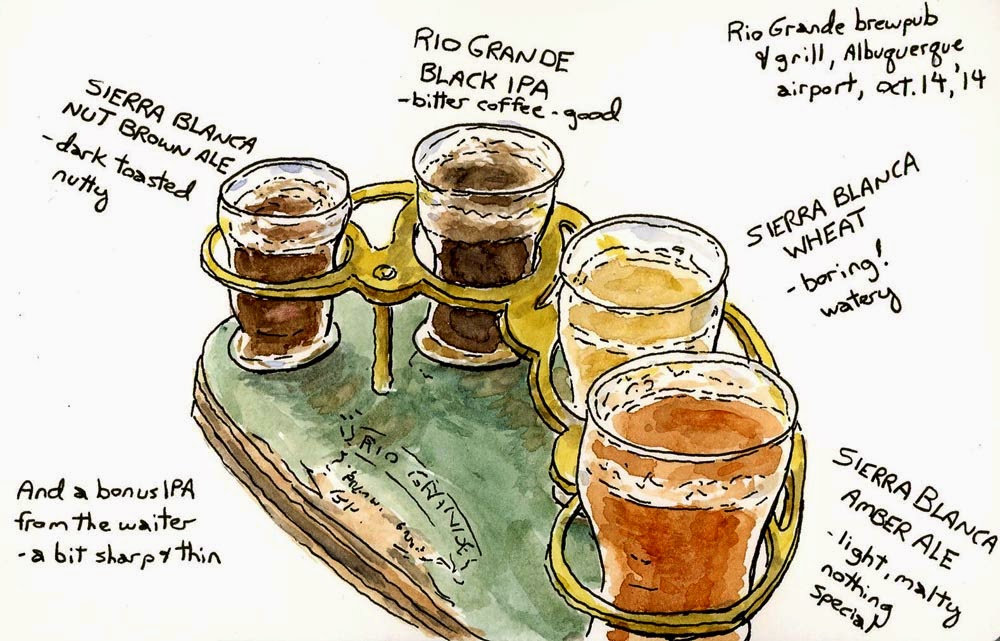 Rio Grande brewpub
& grill, Albuquerque
airport, Oct. 14, '14
RIO GRANDE
BLACK IPA
- bitter coffee - good
SIERRA BLANCA
NUT BROWN ALE
- dark toasted
nutty
SIERRA BLANCA
WHEAT
- boring!
watery
SIERRA BLANCA
AMBER ALE
- light, malty
nothing
special
And a bonus IPA
from the waiter
- a bit sharp & thin
RIO GRANDE